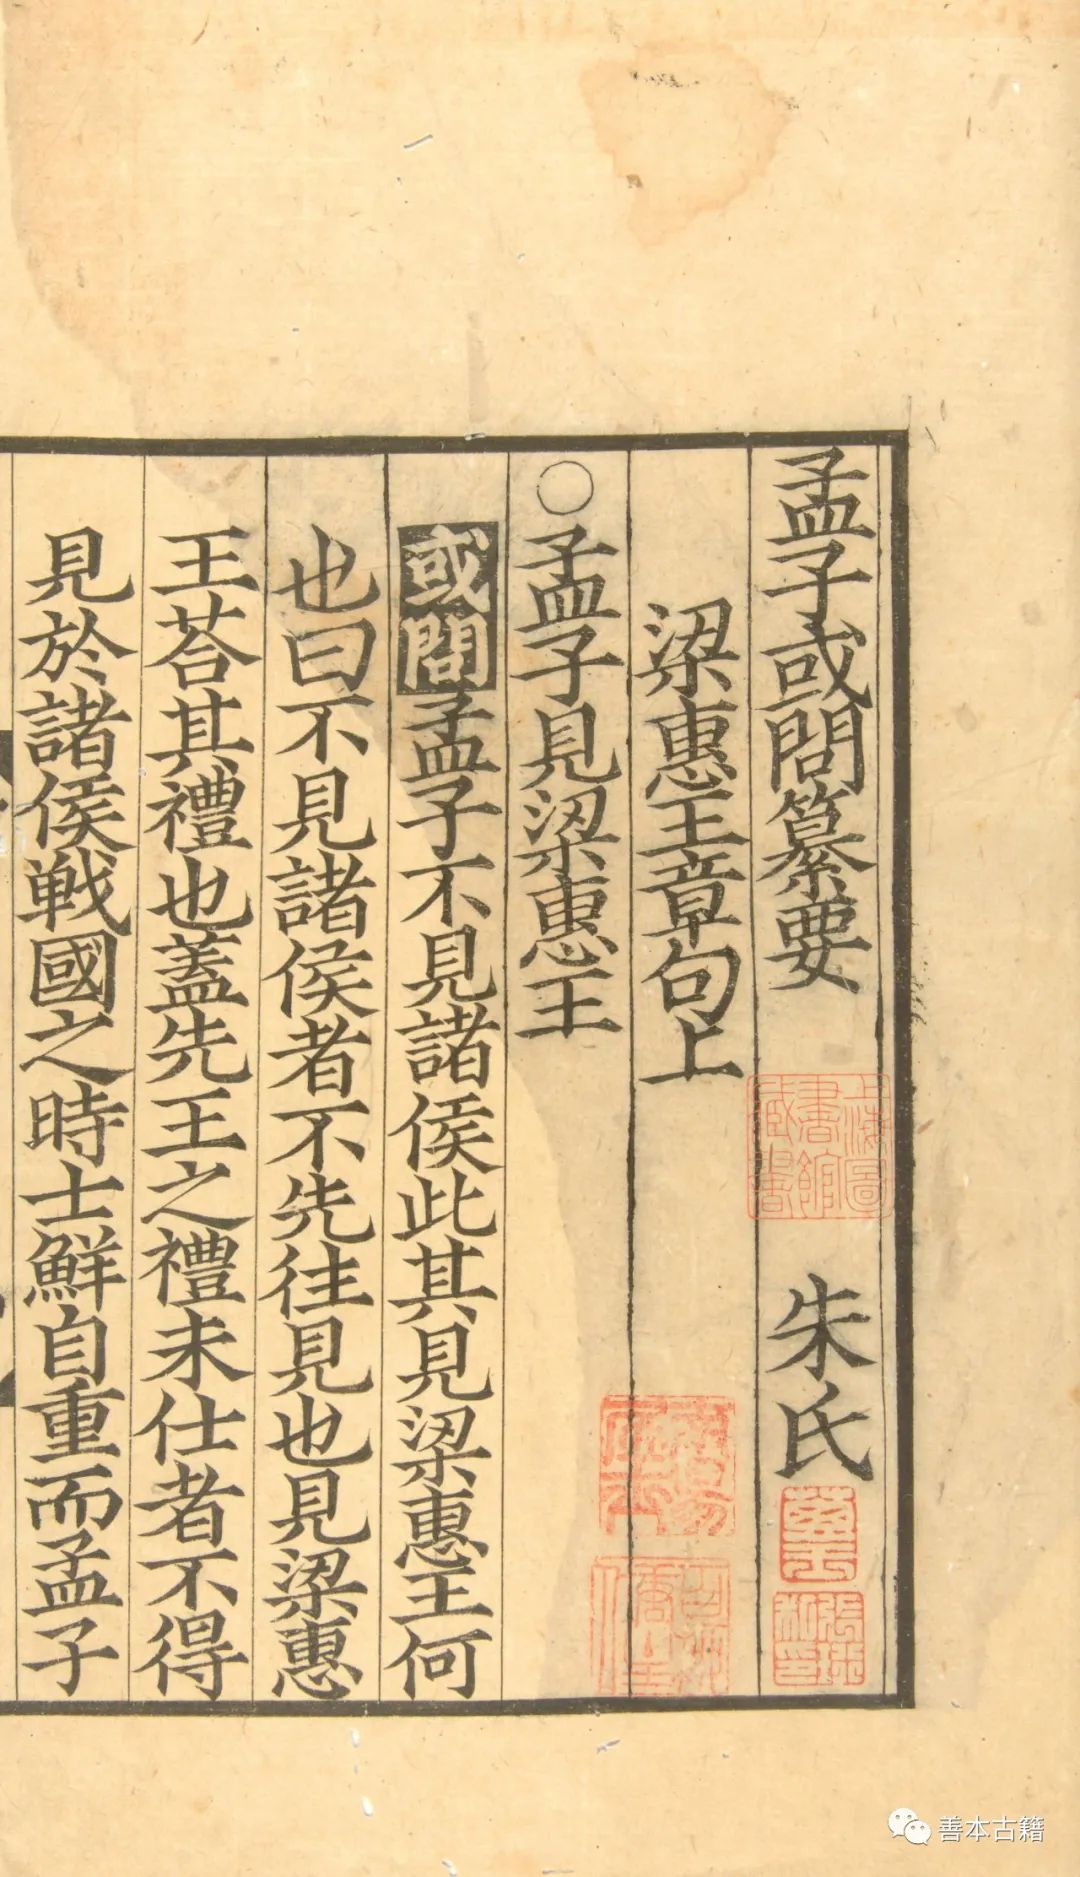 孟子或問纂要 朱氏
梁惠王章句上
○孟子見梁惠王
或問孟子不見諸侯此其見梁惠王何
也曰不見諸侯者不先往見也見梁惠
王荅其禮也蓋先王之禮未仕者不得
見於諸侯戦國之時士鮮自重而孟子
上海圖書館藏書
善本古籍